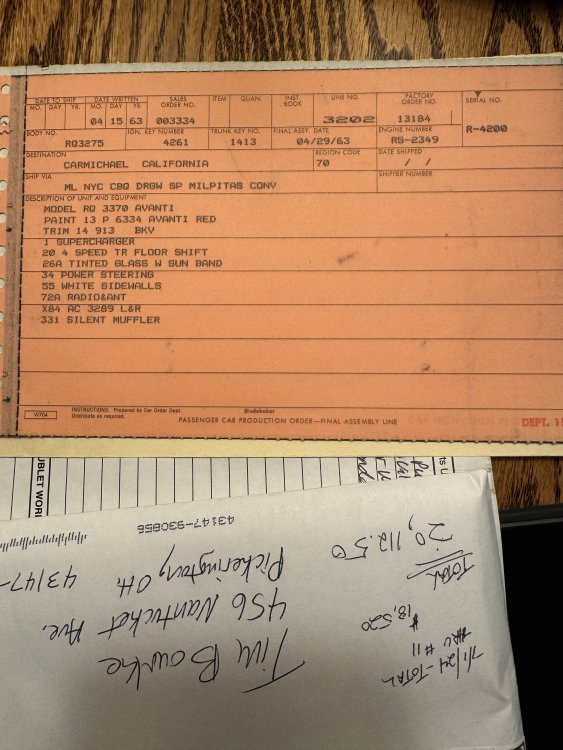 DATE TO SHIP
MO. DAY YR.
DATE WRITTEN
MO. DAY YR.
04 15 63
SALES ORDER NO.
003334
ITEM
QUAN.
INST. BOOK
LINE NO.
3202
FACTORY ORDER NO.
13184
SERIAL NO.
R-4200
BODY NO.
RQ3275
IGN. KEY NUMBER
4261
TRUNK KEY NO.
1413
FINAL ASSY. DATE
04/29/63
ENGINE NUMBER
RS-2349
DESTINATION
CARMICHAEL CALIFORNIA
REGION CODE
70
DATE SHIPPED
/ /
SHIP VIA
ML NYC CBQ DRGW SP MILPITAS CONV
SHIPPER NUMBER
DESCRIPTION OF UNIT AND EQUIPMENT
MODEL RQ 3370 AVANTI
PAINT 13 P 6334 AVANTI RED
TRIM 14 913 BKV
1 SUPERCHARGER
20 4 SPEED TR FLOOR SHIFT
26A TINTED GLASS W SUN BAND
34 POWER STEERING
55 WHITE SIDEWALLS
72A RADIO&ANT
X84 AC 3289 L&R
331 SILENT MUFFLER
W704
INSTRUCTIONS: Prepared by Car Order Dept.
Distribute as required.
Studebaker
PASSENGER CAR PRODUCTION ORDER—FINAL ASSEMBLY LINE
DEPT.
UBLET WOR
43147-930856
456 Nantucket Ave.
Pickerington, OH.
43147-
7/1/24-TOTAL
#11
$18,520
TOTAL
20,112.50